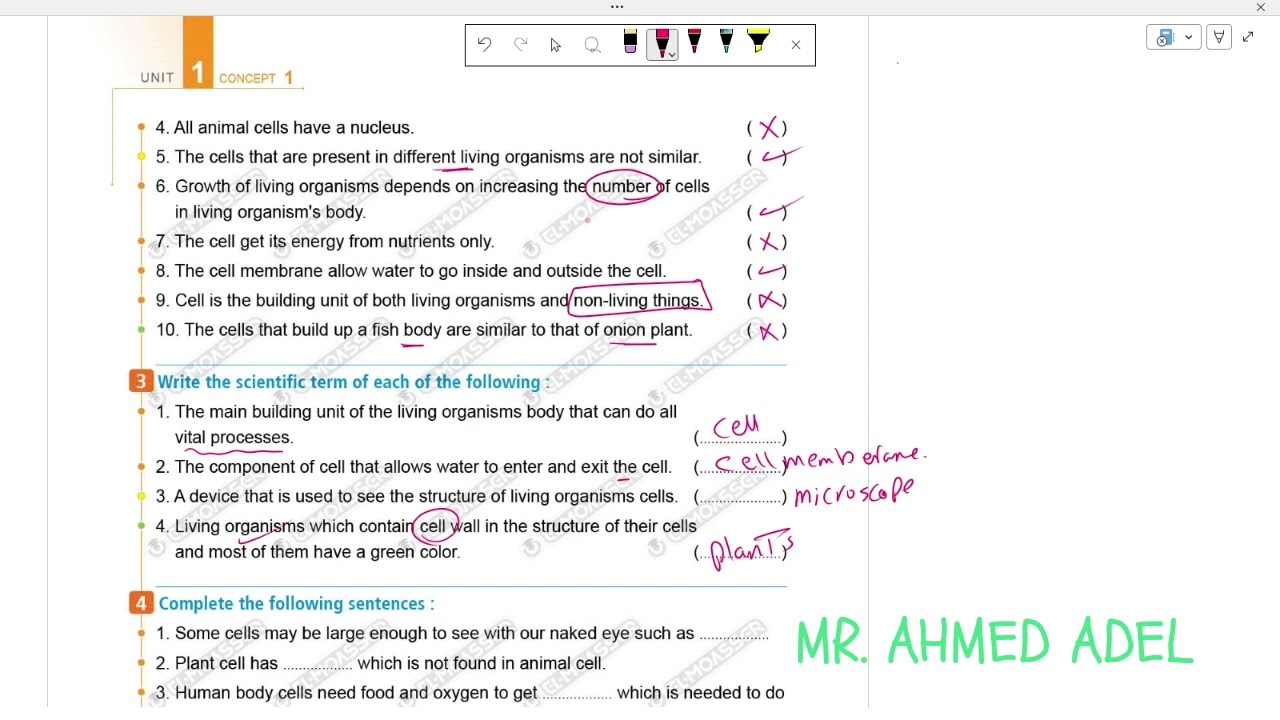 UNIT 1 CONCEPT 1
4. All animal cells have a nucleus. (X)
5. The cells that are present in different living organisms are not similar. (✓)
6. Growth of living organisms depends on increasing the number of cells
in living organism's body. (✓)
7. The cell get its energy from nutrients only. (X)
8. The cell membrane allow water to go inside and outside the cell. (✓)
9. Cell is the building unit of both living organisms and non-living things. (X)
10. The cells that build up a fish body are similar to that of onion plant. (X)
3 Write the scientific term of each of the following :
1. The main building unit of the living organisms body that can do all
vital processes. (cell)
2. The component of cell that allows water to enter and exit the cell. (cell memberane.
3. A device that is used to see the structure of living organisms cells. (....................) microscope
4. Living organisms which contain cell wall in the structure of their cells
and most of them have a green color. (plants)
4 Complete the following sentences :
1. Some cells may be large enough to see with our naked eye such as .................
2. Plant cell has ................. which is not found in animal cell.
3. Human body cells need food and oxygen to get ................. which is needed to do
MR. AHMED ADEL
ELMOASSER